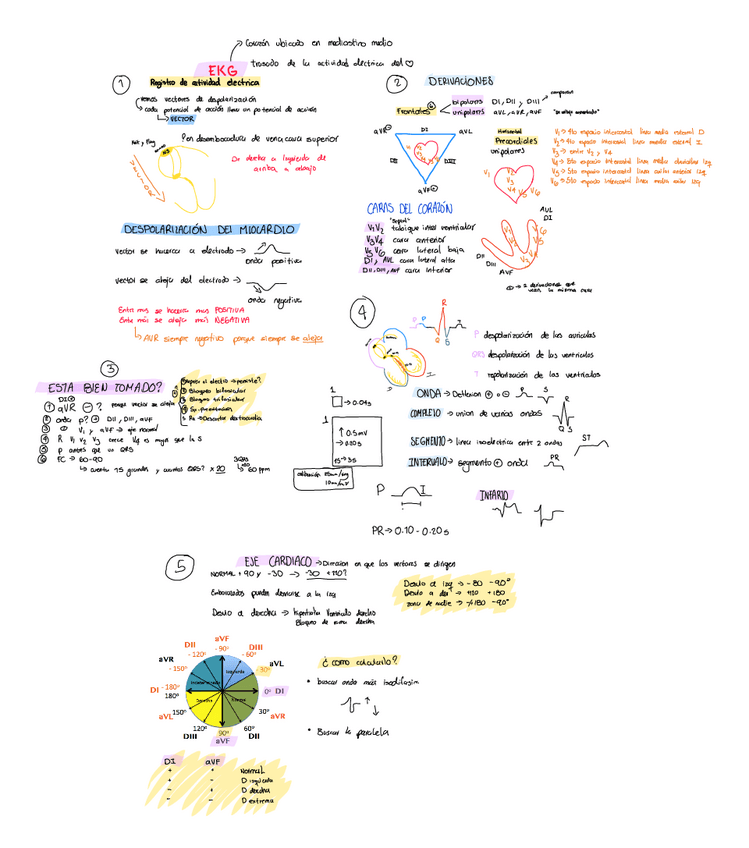 Corazón ubicado en mediastino medio
EKG
trazado de la actividad eléctrica del
1
Registro de actividad electrica
vemos vectores de despolarización
cada potencial de acción lleva un potencial de acción
VECTOR
Por desembocadura de vena cava superior
De derecha a izquierda de
arriba a abajo
VECTOR
DESPOLARIZACIÓN DEL MIOCARDIO
vector se acerca a electrodo →
onda positiva
vector se aleja del electrodo →
onda negativa
Entre mas se acerca mas POSITIVA
Entre más se aleja más NEGATIVA
AVR siempre negativo porque siempre se aleja
2
DERIVACIONES
Frontales
bipolares DI, DII, DIII
unipolares aVL, aVR, aVF
aVR
DI
aVL
DII
DIII
aVF
Horizontal
Precordiales
unipolares
V1
V2
V3
V4 V5 V6
V1 → 4to espacio intercostal linea media esternal D
V2 → 4to espacio intercostal linea media esternal I
V3 → entre V2 y V4
V4 → 5to espacio intercostal linea media clavicular izq
V5 → 5to espacio intercostal linea axilar anterior izq
V6 → 5to espacio intercostal linea media axilar izq
CARAS DEL CORAZÓN
"Septal"
V1 V2 tabique inter ventricular
V3 V4 cara anterior
V5 V6 cara lateral baja
DI, AVL cara lateral alta
DII, DIII, AVF cara inferior
AVL
DI
DII
DIII
AVF
2 derivaciones que
vean la misma cara
3
ESTA BIEN TOMADO?
DI
1 aVR ⊖? porque vector se aleja
2 onda p? ⊕ DII, DIII, aVF
3 V1 y aVF → eje normal
4 R V1 V2 V3 crece V4 es mayor que la S
5 p antes que un QRS
6 FC → 60-90
cuento 15 grandes y cuantos QRS? x 20
3QRS
60 ppm
4
P
R
Q
S
T
P despolarización de las auriculas
QRS despolarización de los ventriculos
T repolarización de los ventriculos
1
→ 0.04s
1
↑ 0.5mV
→ 0.20s
ONDA → Deflexion ⊕ o ⊖
COMPLEJO → union de varias ondas
SEGMENTO → linea isoelectrica entre 2 ondas
ST
INTERVALO → segmento ⊕ onda
PR
P
I
INFARTO
PR → 0.10 - 0.20s
5
EJE CARDIACO → Direccion en que los vectores se dirigen
NORMAL +90 y -30 → -30 +110?
Embarazadas pueden desviarse a la izq
Desvio a derecha → hipertrofia Ventriculo derecho
Bloqueo de rama derecha
Desvio a izq → -30 -90°
Desvio a der → +110 +180
zona de nadie → -/+180 -90°
aVF
-90°
DII
-120°
DIII
-60°
aVR
-150°
aVL
-30°
DI -180°
180°
0° DI
aVL
150°
30°
aVR
120°
DIII
90°
aVF
60°
DII
¿como calcularlo?
• buscar onda más isodifasica
• Buscar la paralela
DI aVF
+ + Normal
+ - D izquierda
- + D derecha
- - D extrema